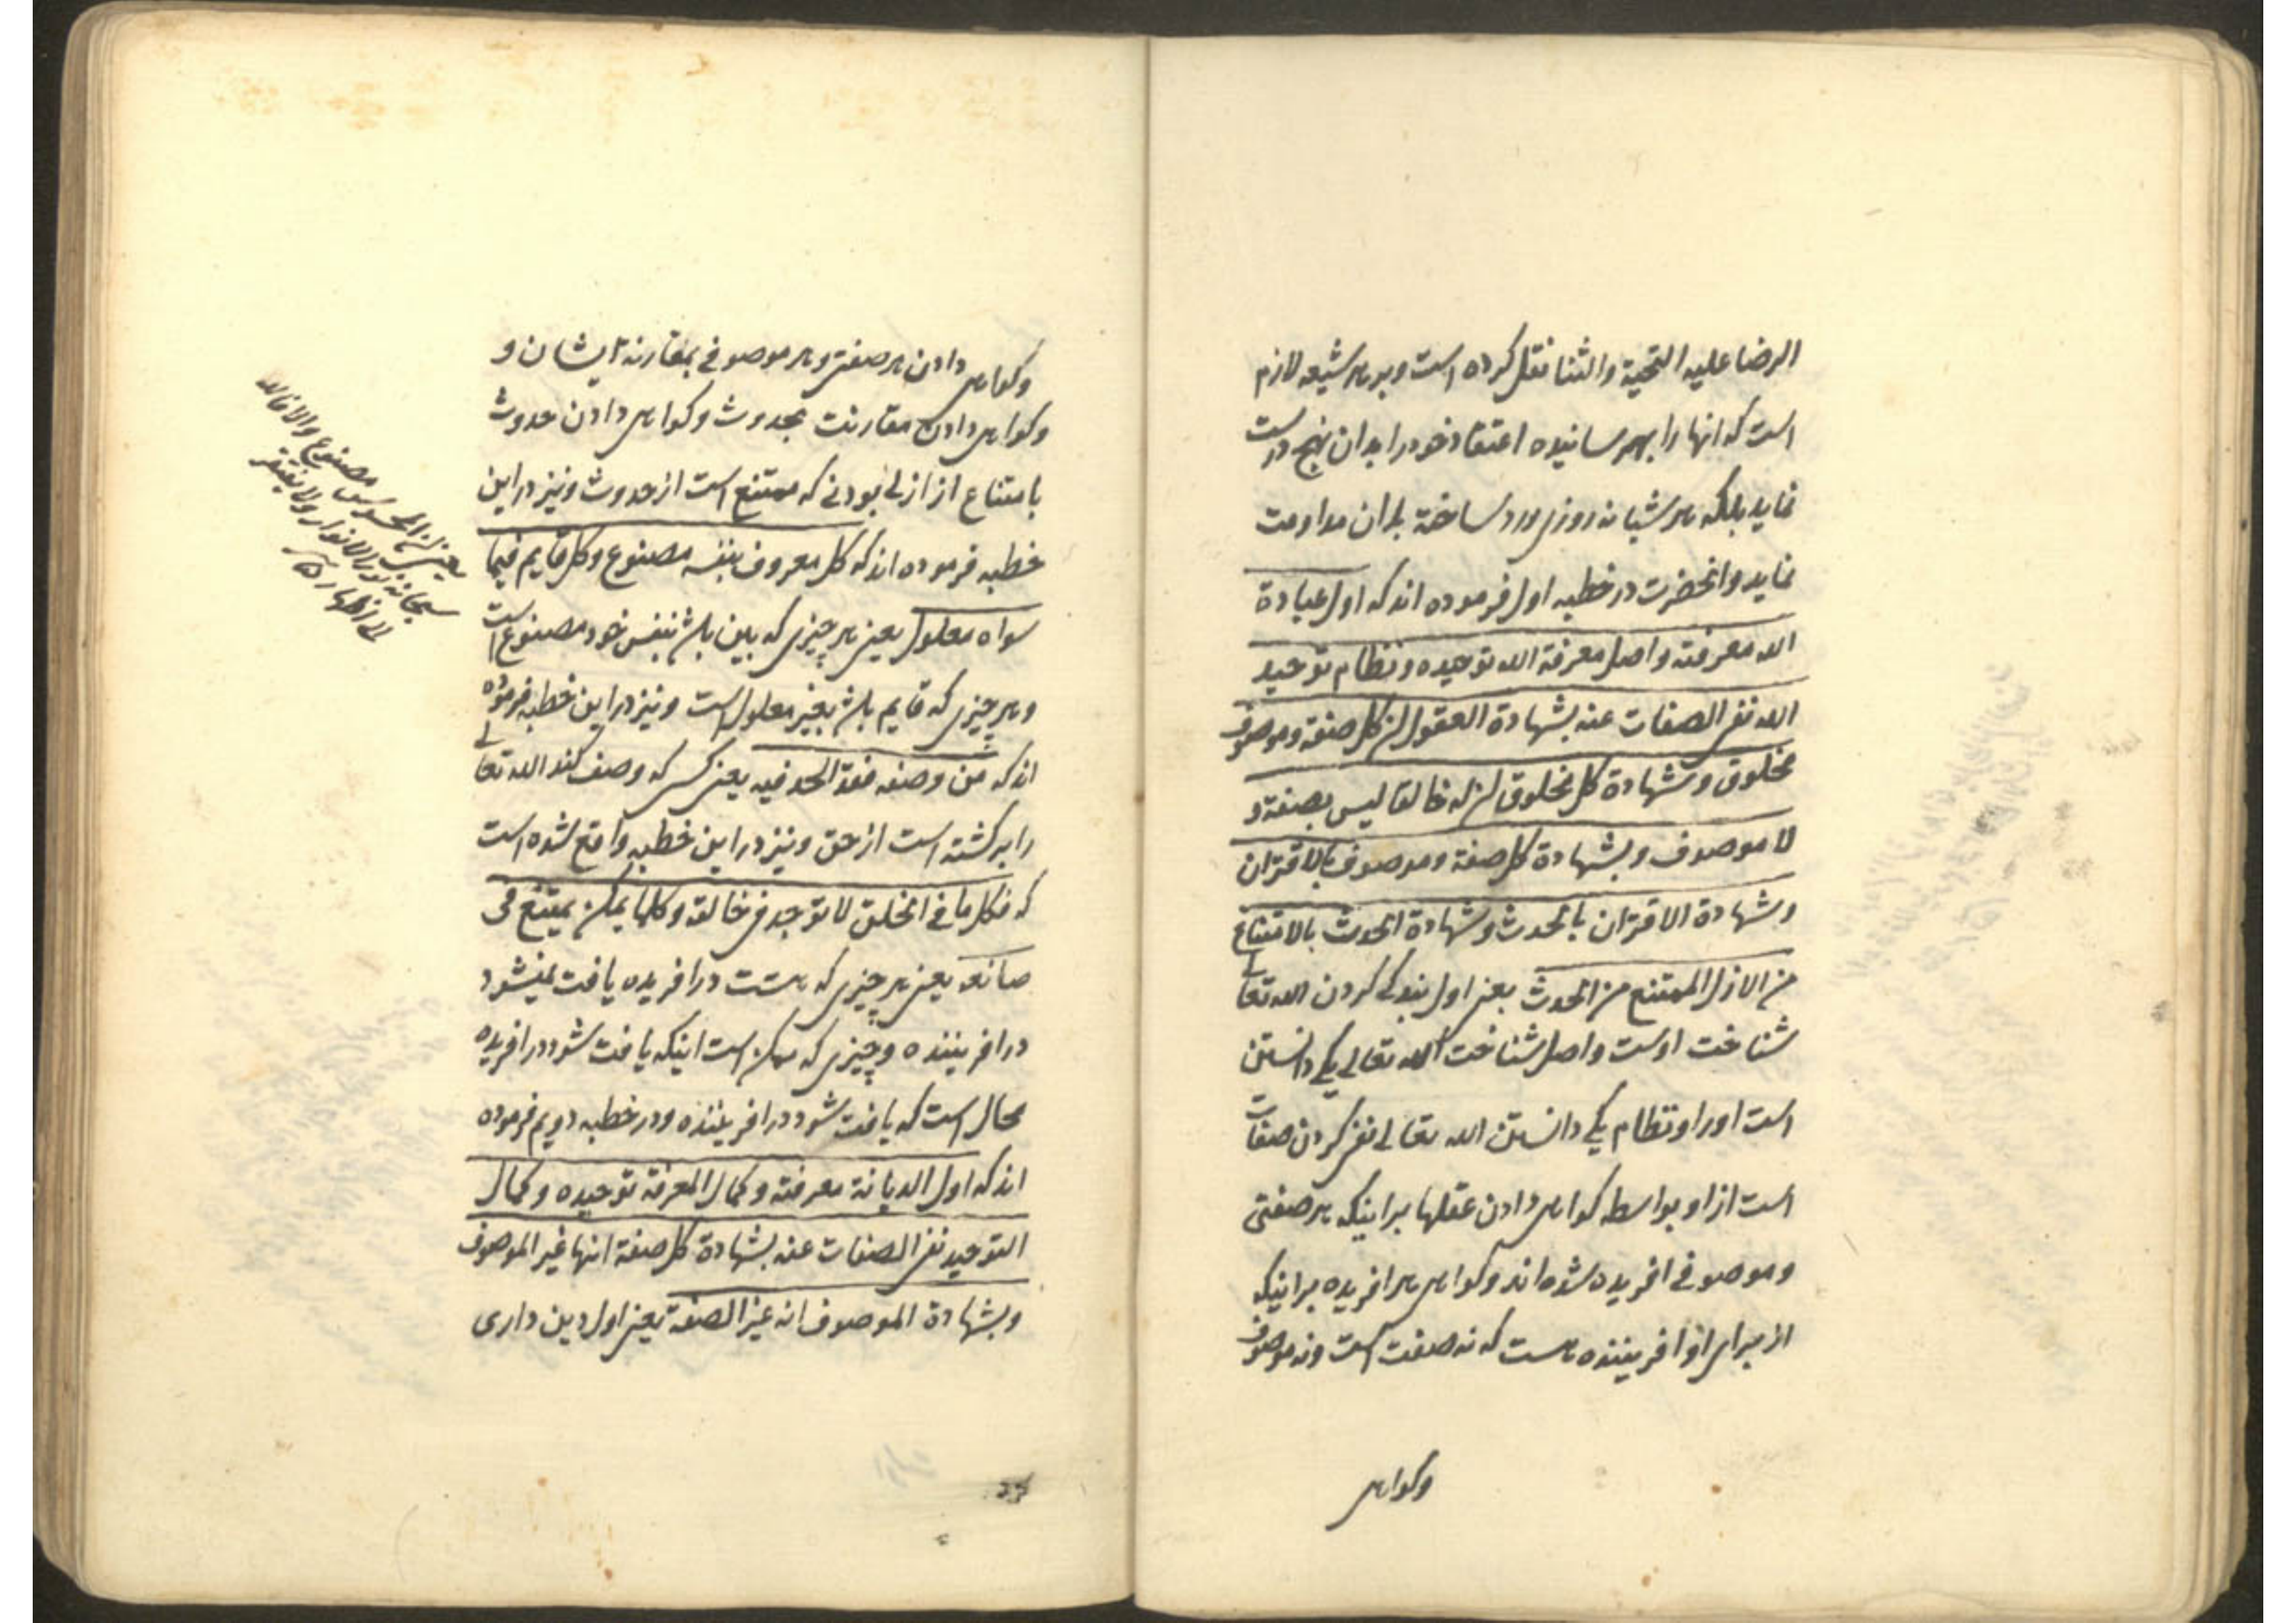 الرضا علیه التحیة والثنا نقل کرده است و بر هر شیعه لازم
است که انها را بهم رسانیده اعتقاد خود را بدان نهج درست
نماید بلکه هر شبانه روزی ورد ساخته بدان مداومت
نماید وانحضرت در خطبه اول فرموده اند که اول عبادة
الله معرفته واصل معرفة الله توحیده ونظام توحید
الله نفی الصفات عنه بشهادة العقول ان کل صفة وموصوف
مخلوق وشهادة کل مخلوق ان له خالقا لیس بصفة و
لا موصوف وبشهادة کل صفة وموصوف بالاقتران
وشهادة الاقتران بالحدث وشهادة الحدث بالامتناع
من الازل الممتنع من الحدث یعنی اول بندکی کردن الله تعالی
شناخت اوست واصل شناخت الله تعالی یکی دانستن
است او را ونظام یکی دانستن الله تعالی نفی کردن صفات
است از او بواسطه کواهی دادن عقلها بر اینکه هر صفتی
وموصوفی افریده شده اند وکواهی هر افریده بر اینکه
از برای او افریننده هست که نه صفت است ونه موصوف
وکواهی
وکواهی دادن هر صفتی وهر موصوفی بمقارنة ایشان و
وکواهی دادن مقارنت بحدوث وکواهی دادن حدوث
بامتناع از ازلی بودنی که ممتنع است از حدوث ونیز در این
خطبه فرموده اند که کل معروف بنفسه مصنوع وکل قایم فیما
سواه معلول یعنی هر چیزی که باین باشد بنفس خود مصنوع است
وهر چیزی که قایم باشد بغیر معلول است ونیز در این خطبه فرموده
اند که من وصفه فقد الحد فیه یعنی کسی که وصف کند الله تعالی
را برکشته است از حق ونیز در این خطبه واقع شده است
که فکل ما فی الخلق لا توجد فی خالقه وکلما یمکن یمتنع فی
صانعه یعنی هر چیزی که هست در افریده یافت نمیشود
در افریننده وچیزی که ممکن است اینکه یافت شود در افریده
محال است که یافت شود در افریننده ودر خطبه دویم فرموده
اند که اول الدیانة معرفته وکمال المعرفة توحیده وکمال
التوحید نفی الصفات عنه بشهادة کل صفة انها غیر الموصوف
وبشهادة الموصوف انه غیر الصفة یعنی اول دین داری
یعنی ان المحسوس مصنوع والا فالله
سبحانه نور الانوار ولا یفتقر
الی اظهار